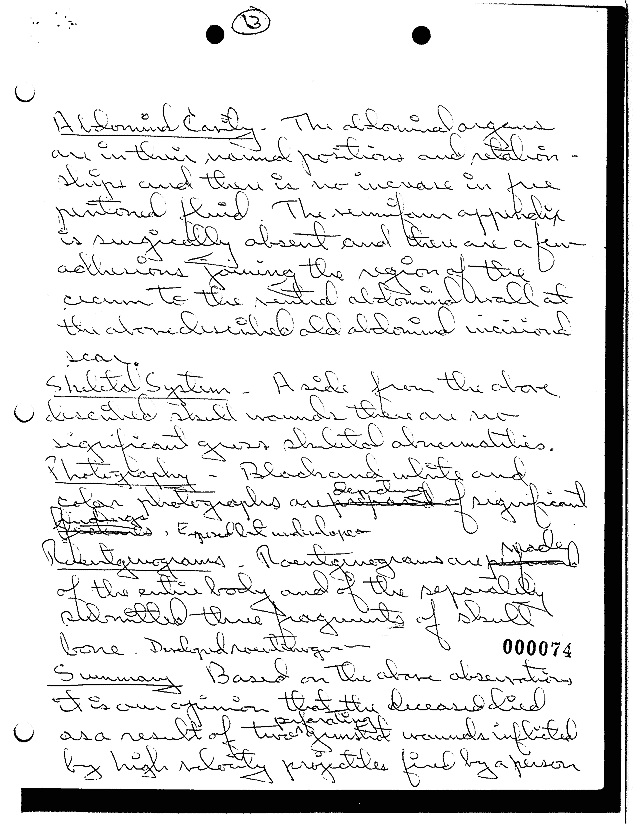 13
Abdominal Cavity - The abdominal organs
are in their normal positions and relation-
ships and there is no increase in free
peritoneal fluid. The vermiform appendix
is surgically absent and there are a few
adhesions joining the region of the
cecum to the ventral abdominal wall at
the above described old abdominal incisional
scar.
Skeletal System - Aside from the above
described skull wounds there are no
significant gross skeletal abnormalities.
Photography - Black and white and
depicting
color photographs are of significant
findings
features, Exposed but undeveloped
made
Roentgenograms - Roentgenograms are
of the entire body and of the separately
submitted three fragments of skull
bone. Developed roentgenogram
000074
Summary Based on the above observations
it is our opinion that the deceased died
perforating
as a result of two gunshot wounds inflicted
by high velocity projectiles fired by a person